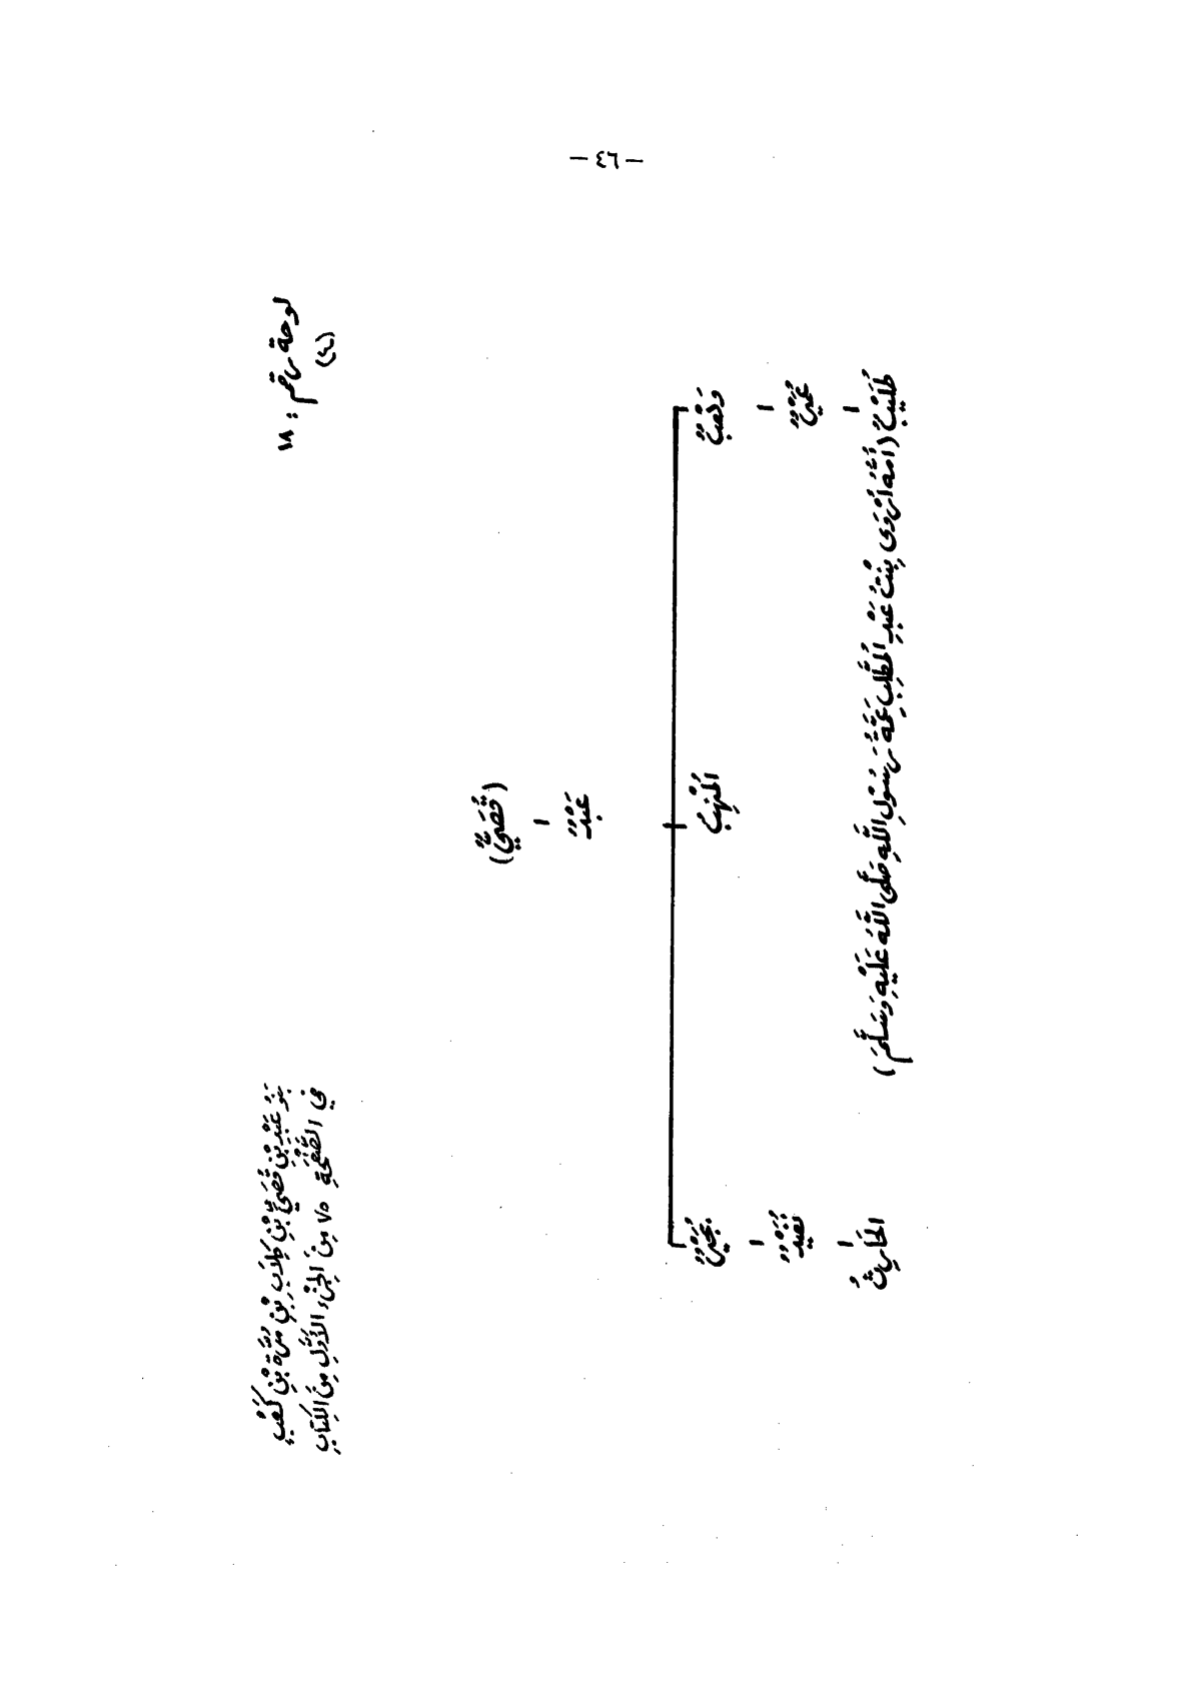 - ٤٦ -
لوحة رقم : ١٨
بَنُو عَبْدِ بْنِ قُصَيِّ بْنِ كِلَابِ بْنِ مُرَّةَ بْنِ كَعْبٍ
في الصَّفْحَةِ ٧٥ مِنَ الجُزْءِ الأَوَّلِ مِنَ الكِتَابِ
(قُصَيٌّ)
عَبْدٌ
وَهْبٌ
المُنْهِبُ
بُجَيْرٌ
عُمَيْرٌ
نُقَيْدٌ
طُلَيْبٌ (أُمُّهُ أَرْوَى بِنْتُ عَبْدِ المُطَّلِبِ عَمَّةُ رَسُولِ اللَّهِ صَلَّى اللَّهُ عَلَيْهِ وَسَلَّمَ)
الحَارِثُ